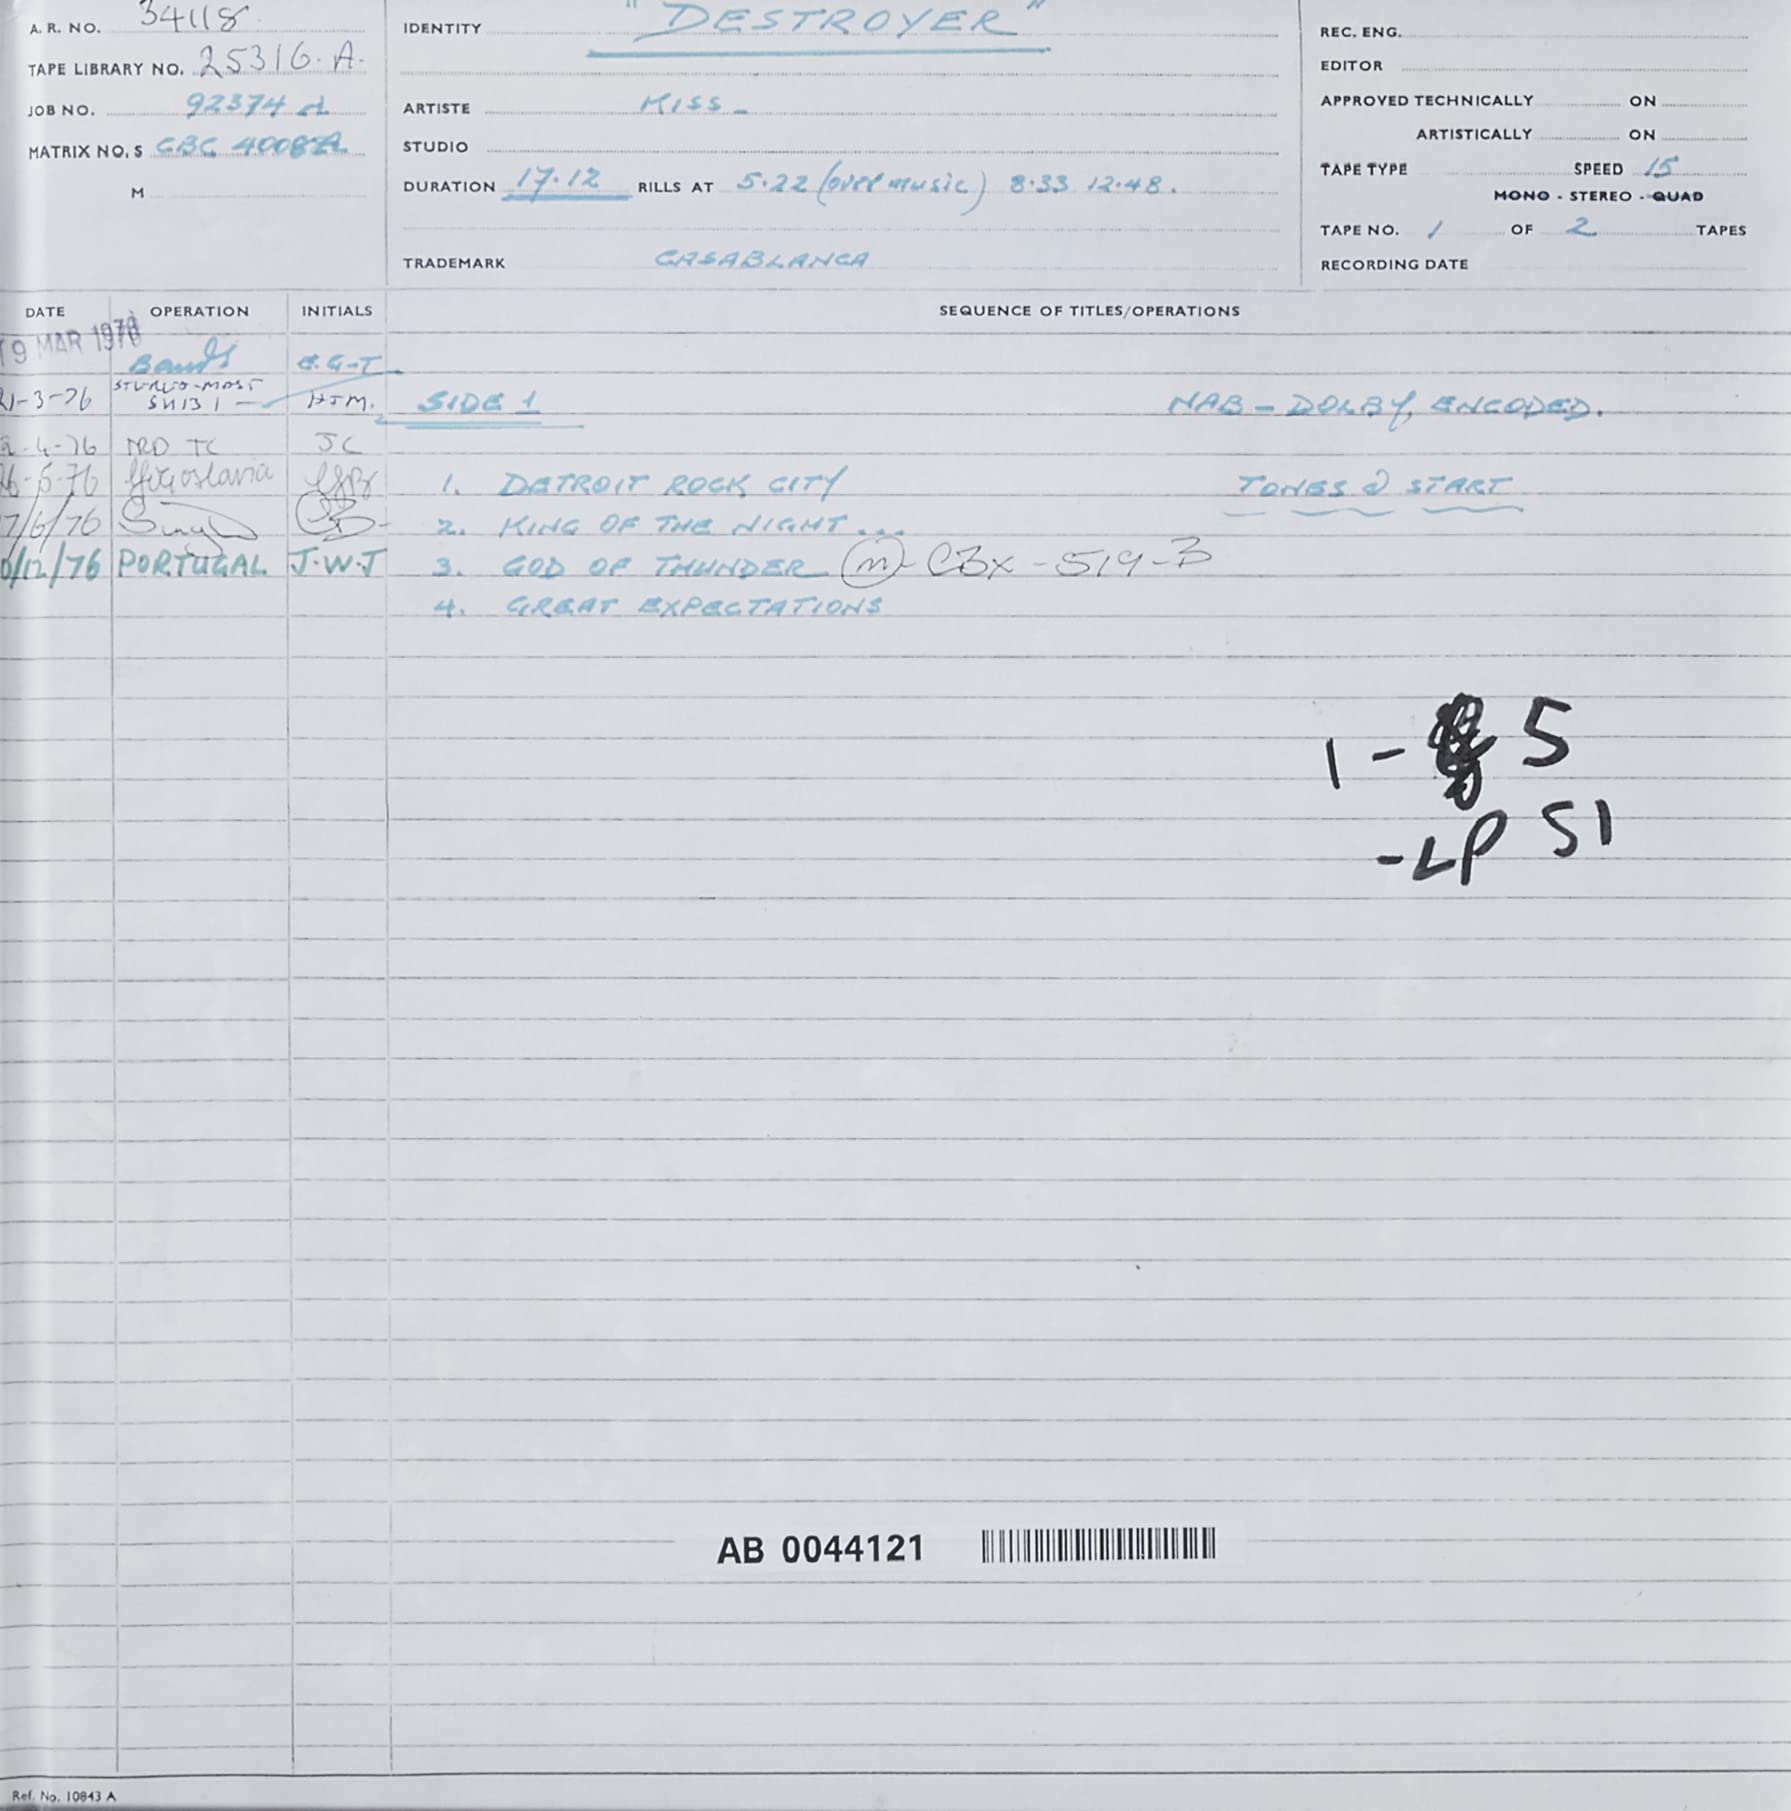 A. R. NO. 34118
TAPE LIBRARY NO. 25316. A.
JOB NO. 92374
MATRIX NO, S CBC 4008 A
M
IDENTITY "DESTROYER"
ARTISTE KISS
STUDIO
DURATION 17.12 RILLS AT 5.22 (over music) 8.33 12.48.
TRADEMARK CASABLANCA
REC. ENG.
EDITOR
APPROVED TECHNICALLY ON
ARTISTICALLY ON
TAPE TYPE SPEED 15
MONO - STEREO - QUAD
TAPE NO. 1 OF 2 TAPES
RECORDING DATE
DATE OPERATION INITIALS SEQUENCE OF TITLES/OPERATIONS
19 MAR 1976 Bands E.G-T.
21-3-76 H.J.M. SIDE 1 NAB - DOLBY, ENCODED.
SH131
2-4-76 TC JC
26-5-76 Yugoslavia 1. DETROIT ROCK CITY TONES @ START
7/6/76 2. KING OF THE NIGHT...
0/12/76 PORTUGAL J.W.J 3. GOD OF THUNDER (m) - CBX - 519-B
4. GREAT EXPECTATIONS
1 - 5
-LP S1
AB 0044121
Ref. No. 10843 A